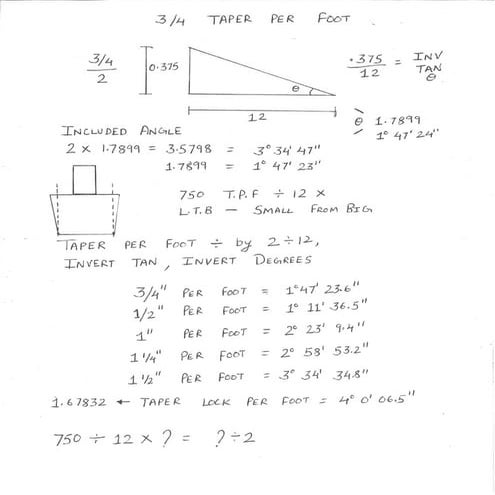 3/4 TAPER PER FOOT
3/4
2
0.375
θ
12
.375
12
= INV
TAN
θ
θ 1.7899
1° 47' 24"
INCLUDED ANGLE
2 x 1.7899 = 3.5798 = 3° 34' 47"
1.7899 = 1° 47' 23"
750 T.P.F ÷ 12 x
L.T.B - SMALL FROM BIG
TAPER PER FOOT ÷ by 2 ÷ 12,
INVERT TAN, INVERT DEGREES
3/4" PER FOOT = 1° 47' 23.6"
1/2" PER FOOT = 1° 11' 36.5"
1" PER FOOT = 2° 23' 9.4"
1 1/4" PER FOOT = 2° 58' 53.2"
1 1/2" PER FOOT = 3° 34' 34.8"
1.67832 ← TAPER LOCK PER FOOT = 4° 0' 06.5"
750 ÷ 12 x ? = ? ÷ 2